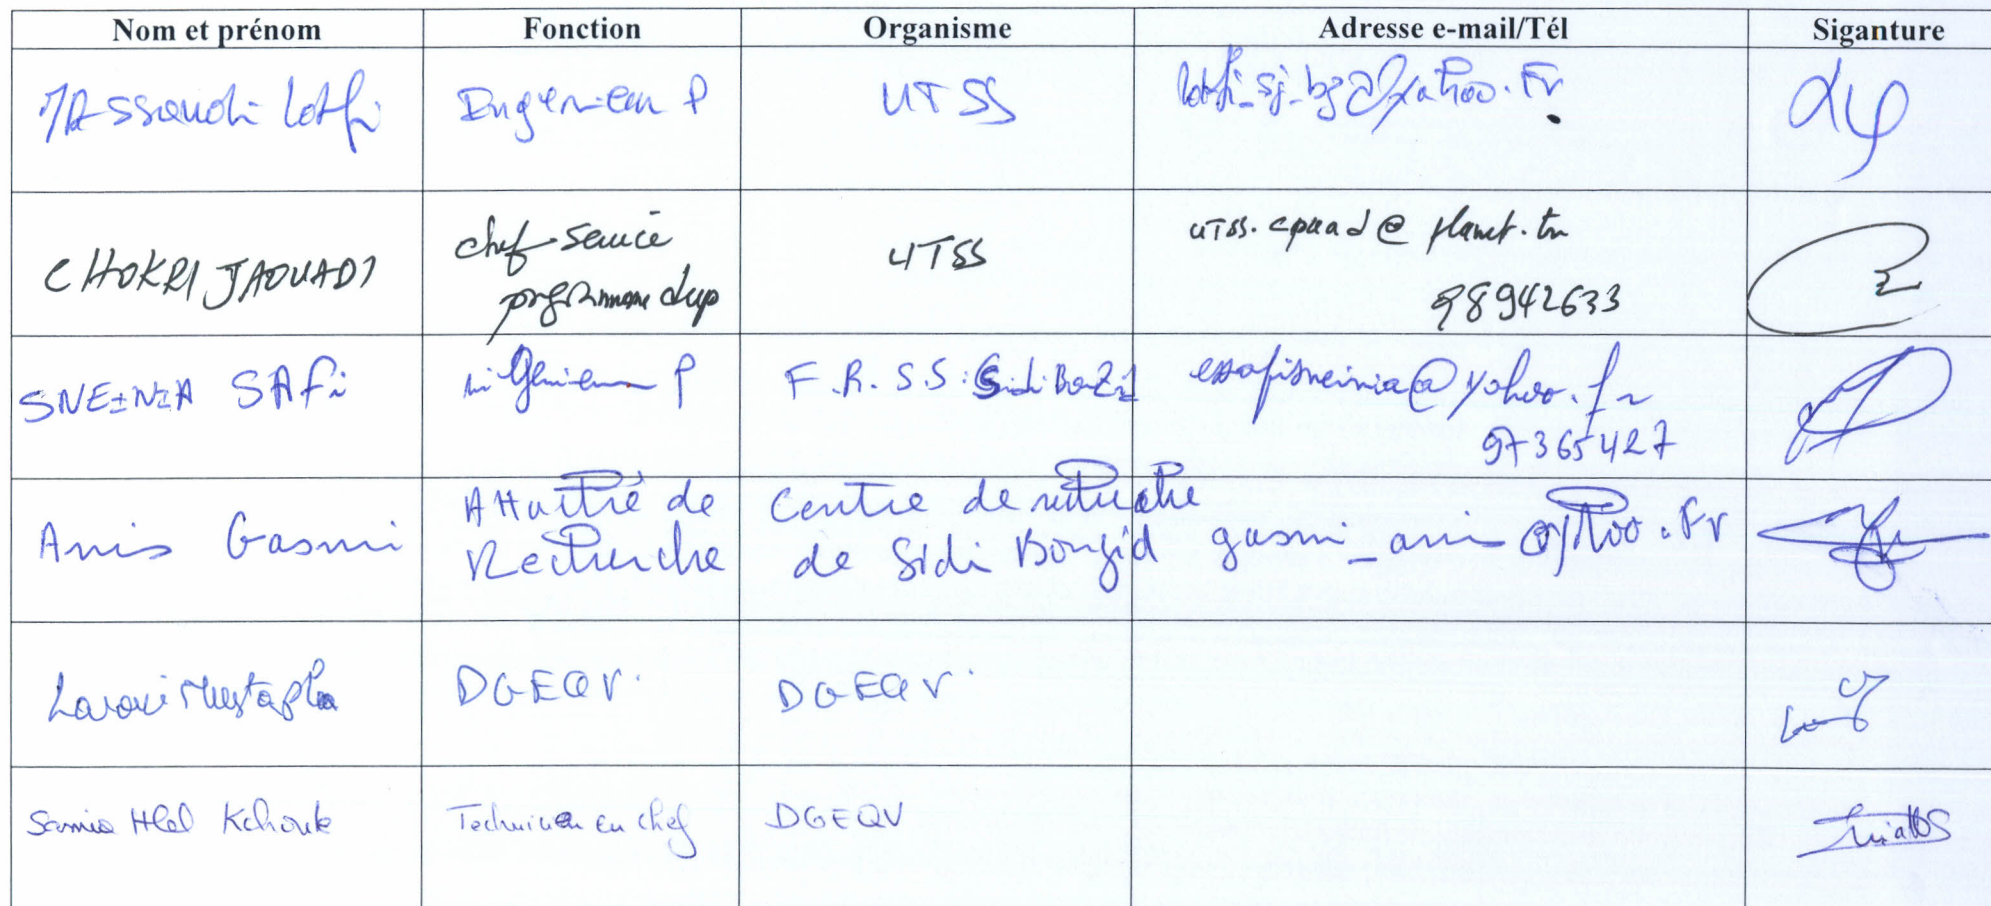 Nom et prénom Fonction Organisme Adresse e-mail/Tél Siganture
Massaoudi Lotfi Ingénieur P UTSS lotfi_sj_bz@yahoo.Fr
CHOKRI JAOUADI chef service UTSS utss.cpaad@planet.tn
programme dep 98942633
SNEINIA SAFi ingénieur P F.R.S.S. Sidi Bouzid essafisneinia@yahoo.fr
97365427
Anis Gasmi Attaché de Centre de recherche
Recherche de Sidi Bouzid gasmi_anis@yahoo.Fr
Laroui Mustapha DGEQV. DGEQV.
Samia Hlel Technicien en chef DGEQV